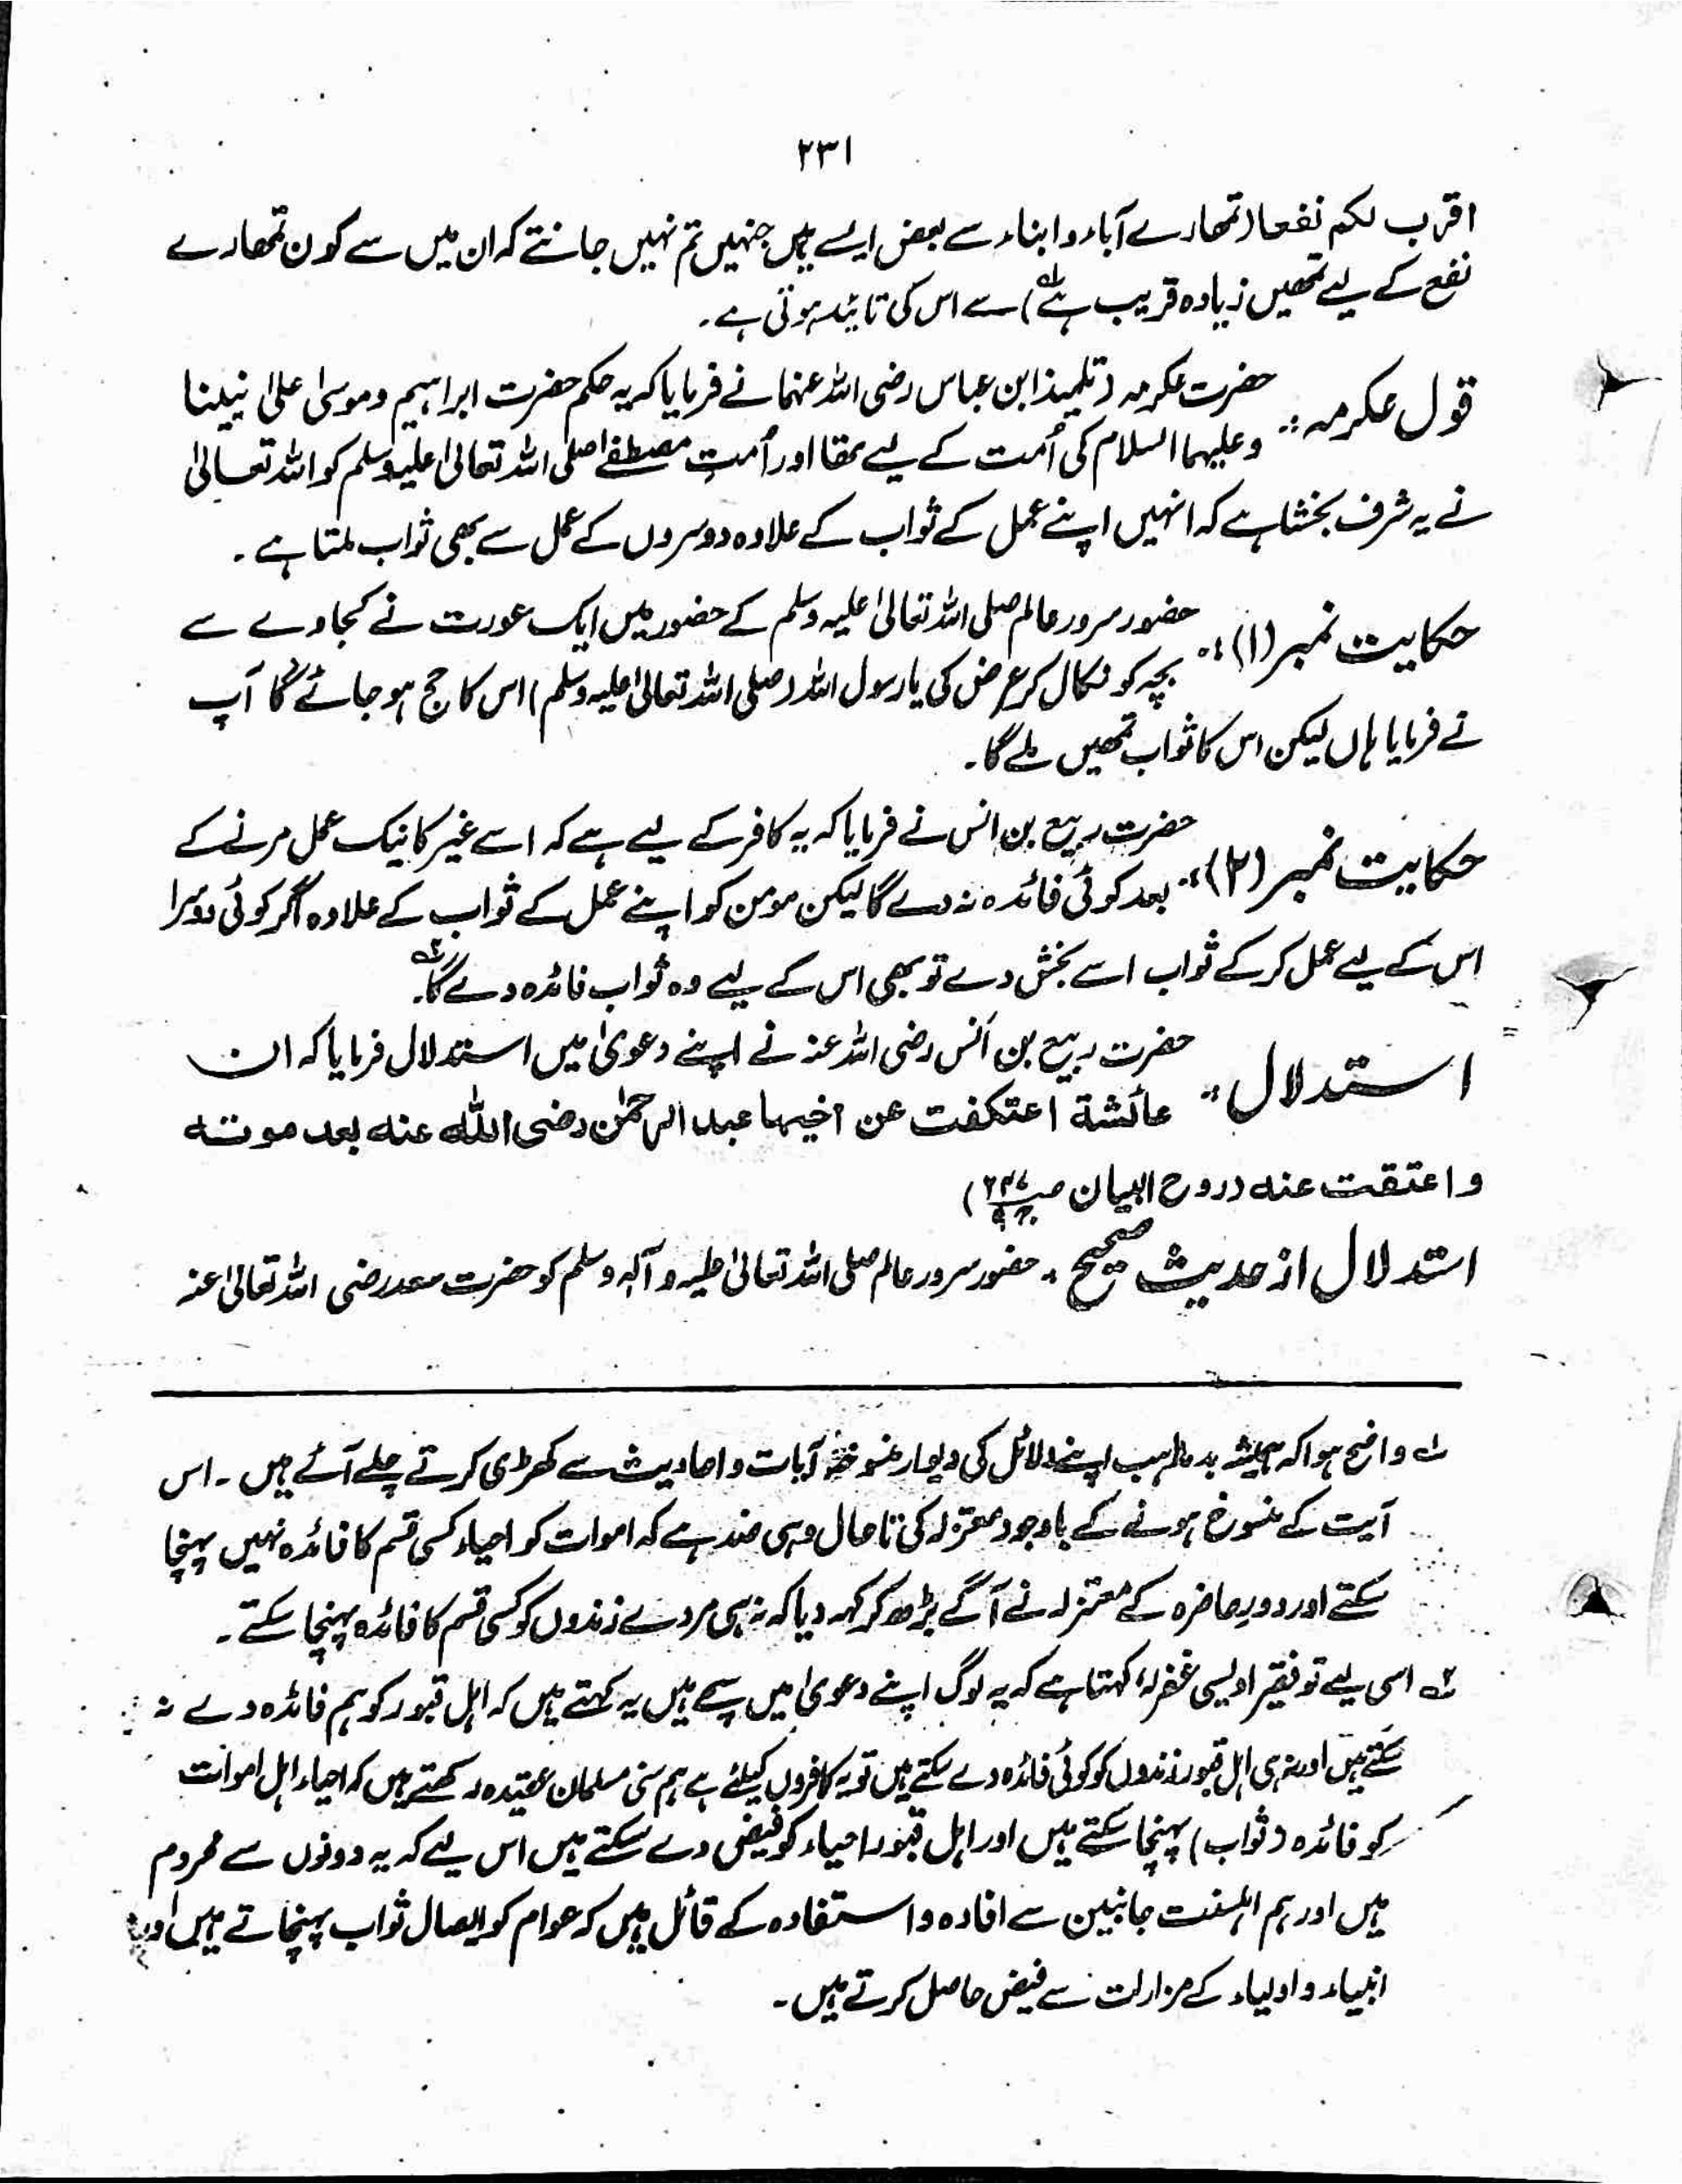 ۲۳۱
اقرب لکم نفعا (تمھارے آباء و ابناء سے بعض ایسے ہیں جنہیں تم نہیں جانتے کہ ان میں سے کون تمھارے
نفع کے لیے تمھیں زیادہ قریب ہے؎۱) سے اس کی تائید ہوتی ہے۔
قول عکرمہ :۔ حضرت عکرمہ (تلمیذ ابن عباس رضی اللہ عنہما نے فرمایا کہ یہ حکم حضرت ابراہیم و موسیٰ علیٰ نبینا
وعلیہما السلام کی اُمت کے لیے تھا اور اُمتِ مصطفےٰ صلی اللہ تعالیٰ علیہ وسلم کو اللہ تعالیٰ
نے یہ شرف بخشا ہے کہ انہیں اپنے عمل کے ثواب کے علاوہ دوسروں کے عمل سے بھی ثواب ملتا ہے۔
حکایت نمبر (۱) :۔ حضور سرور عالم صلی اللہ تعالیٰ علیہ وسلم کے حضور میں ایک عورت نے کجاوے سے
بچہ کو نکال کر عرض کی یا رسول اللہ (صلی اللہ تعالیٰ علیہ وسلم) اس کا حج ہو جائے گا آپ
نے فرمایا ہاں لیکن اس کا ثواب تمھیں ملے گا۔
حکایت نمبر (۲) :۔ حضرت ربیع بن انس نے فرمایا کہ یہ کافر کے لیے ہے کہ اسے غیر کا نیک عمل مرنے کے
بعد کوئی فائدہ نہ دے گا لیکن مومن کو اپنے عمل کے ثواب کے علاوہ اگر کوئی دوسرا
اس کے لیے عمل کر کے ثواب اسے بخش دے تو بھی اس کے لیے وہ ثواب فائدہ دے گا؎۲۔
استدلال :۔ حضرت ربیع بن اَنس رضی اللہ عنہ نے اپنے دعویٰ میں استدلال فرمایا کہ ان
عائشة اعتکفت عن اخیہا عبد الرحمٰن رضی اللہ عنہ بعد موتہ
و اعتقت عنہ (روح البیان ص ۲۴۷ ج ۹)
استدلال از حدیث صحیح :۔ حضور سرور عالم صلی اللہ تعالیٰ علیہ و آلہٖ وسلم کو حضرت سعد رضی اللہ تعالیٰ عنہ
؎۱ واضح ہوا کہ ہمیشہ بد مذاہب اپنے دلائل کی دیوار منسوخہ آیات و احادیث سے کھڑی کرتے چلے آئے ہیں۔ اس
آیت کے منسوخ ہونے کے باوجود معتزلہ کی تا حال وہی ضد ہے کہ اموات کو احیاء کسی قسم کا فائدہ نہیں پہنچا
سکتے اور دورِ حاضرہ کے معتزلہ نے آگے بڑھ کر کہہ دیا کہ نہ ہی مردے زندوں کو کسی قسم کا فائدہ پہنچا سکتے۔
؎۲ اسی لیے تو فقیر اویسی غفرلہٗ کہتا ہے کہ یہ لوگ اپنے دعویٰ میں سچے ہیں یہ کہتے ہیں کہ اہل قبور کو ہم فائدہ دے نہ
سکتے ہیں اور نہ ہی اہل قبور زندوں کو کوئی فائدہ دے سکتے ہیں تو یہ کافروں کیلئے ہے ہم سنی مسلمان عقیدہ رکھتے ہیں کہ احیاء اہل اموات
کو فائدہ (ثواب) پہنچا سکتے ہیں اور اہل قبور احیاء کو فیض دے سکتے ہیں اس لیے کہ یہ دونوں سے محروم
ہیں اور ہم اہلسنت جانبین سے افادہ و استفادہ کے قائل ہیں کہ عوام کو ایصال ثواب پہنچاتے ہیں اور
انبیاء و اولیاء کے مزارات سے فیض حاصل کرتے ہیں۔